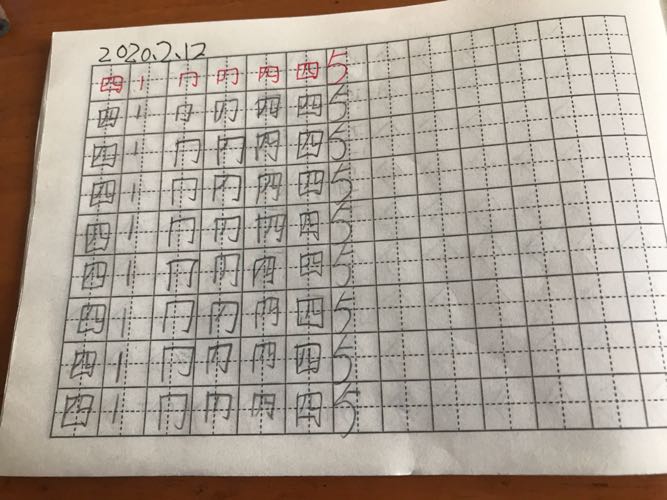 2020.2.12
四 丨 冂 冂 四 四 5
四 丨 冂 冂 四 四 5
四 丨 冂 冂 四 四 5
四 丨 冂 冂 四 四 5
四 丨 冂 冂 四 四 5
四 丨 冂 冂 四 四 5
四 丨 冂 冂 四 四 5
四 丨 冂 冂 四 四 5
四 丨 冂 冂 四 四 5